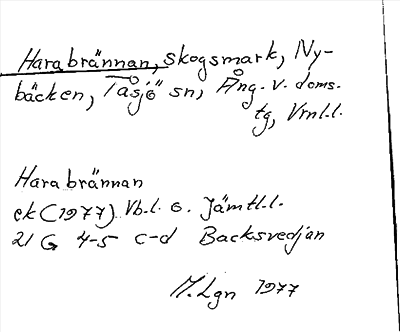 Harabrännan, skogsmark, Ny-
bäcken, Tåsjö sn, Ång. v. doms.
tg, Vrnl.l.
Harabrännan
ek (1977) Vb.l. o. Jämtl.l.
21 G 4-5 c-d Backsvedjan
M. Lgn 1977